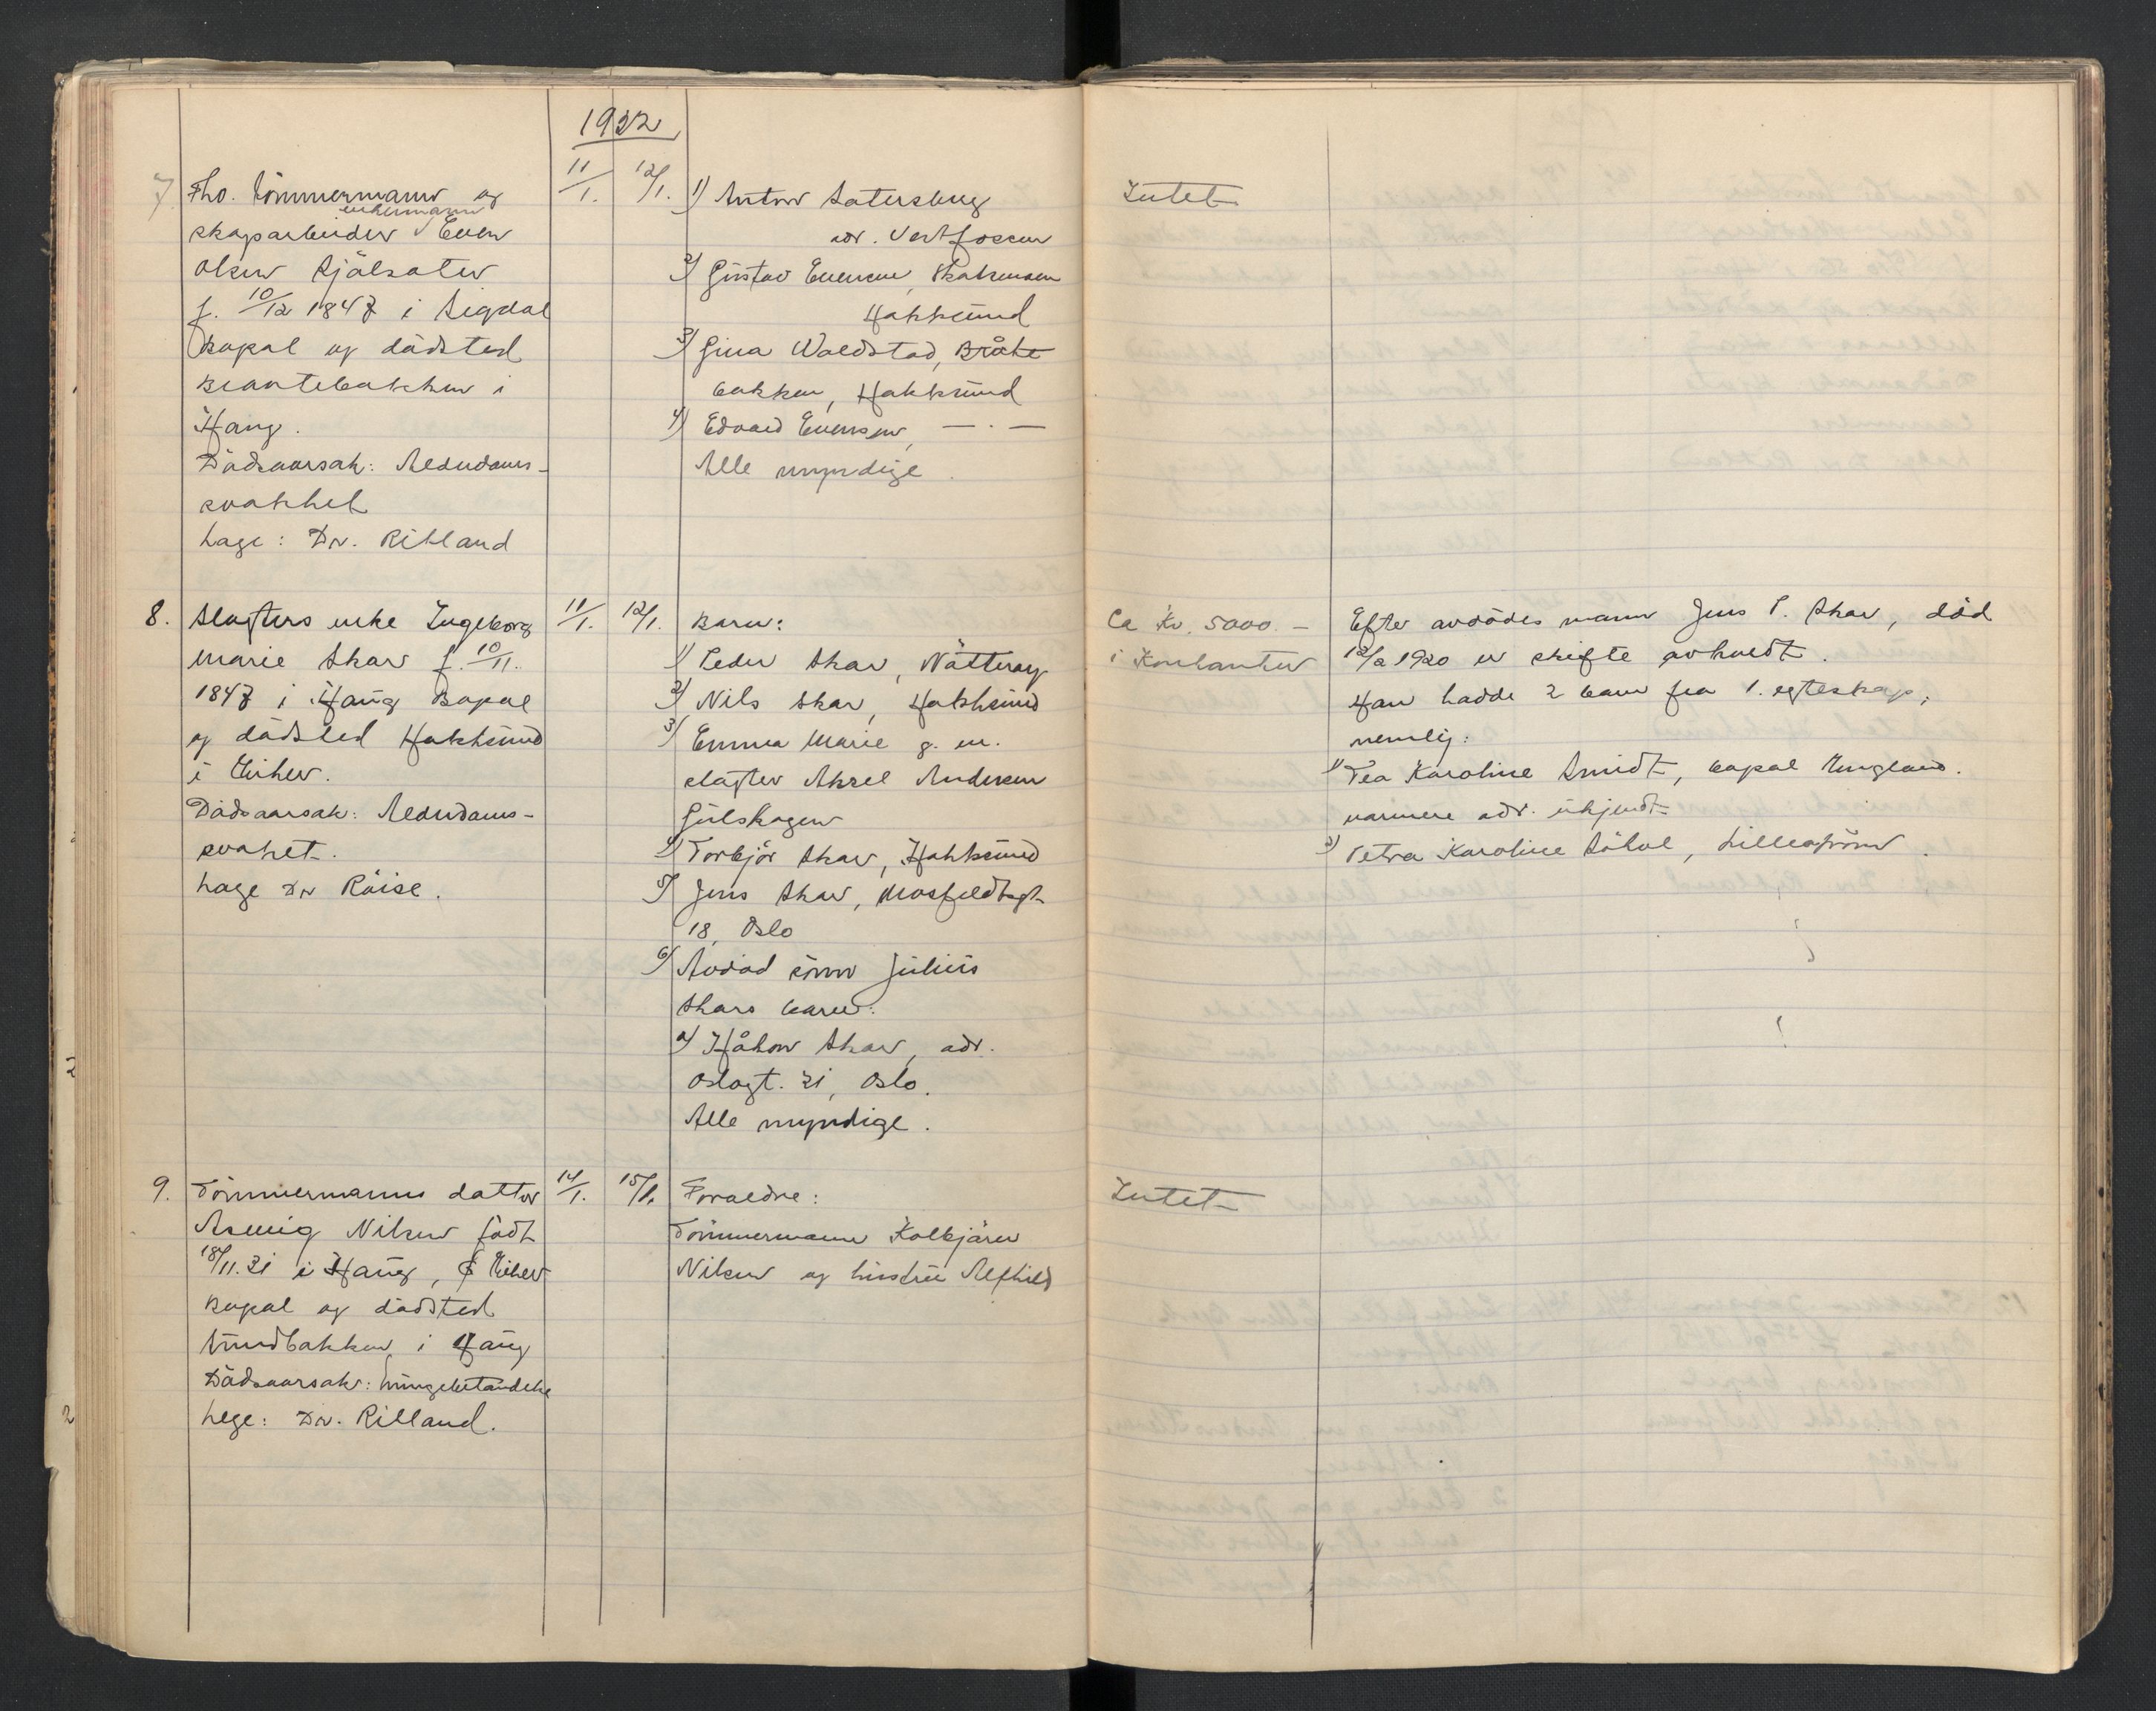 1932
7. Fho. tömmermann og
enkemann
skogsarbeider Even
Olsen
f. 10/12 1847 i Sigdal
Bopal og dödsted
i
Haug.
Dödsaarsak: Alerdoms-
svakhet
Læge: Dr. Rilland
11/1. 12/1.
1) Anton Satersberg
adr. Vestfossen
2) Gustav Evensen,
Hokksund
3) Gina Woldstad, Bråte
bakken, Hokksund
4) Edvard Evensen, — . —
Alle myndige.
Intet
8. Slagters enke Ingeborg
Marie Skar f. 10/11.
1847 i Haug Bopal
og dödsted Hokksund
i Eiker.
Dödsaarsak: Alerdoms-
svakhet.
Læge Dr Röise.
11/1. 12/1.
Barn:
1) Peder Skar, Nötteröy
2) Nils Skar, Hokksund
3) Emma Marie g. m.
slagter Aksel Andersen
Gulskogen
4) Torbjör Skar, Hokksund
5) Jens Skar,
18, Oslo
6) Avdöd sönn Julius
Skars barn:
a) Håkon Skar, adr.
Oslogt. 21, Oslo.
Alle myndige.
Ca Kr. 5000.—
i Kontanter
Efter avdödes mann Jens P. Skar, död
12/2 1920 er skifte avholdt.
Han hadde 2 barn fra 1. egteskap,
nemlig:
1) Tea Karoline Smidt, bopal England.
narmere adr. ukjendt
2) Petra Karoline, Lilleström.
9. Tömmermanns datter
Asmig Nilsen födt
18/11.31 i Haug, Eiker
Bopal og dödsted
Sundbakken i Haug
Dödsaarsak: Lungebetandelse
Lege: Dr. Rilland.
14/1. 15/1.
Foraeldre:
Tömmermann Kolbjörn
Nilsen og hustru Alfhild
Intet